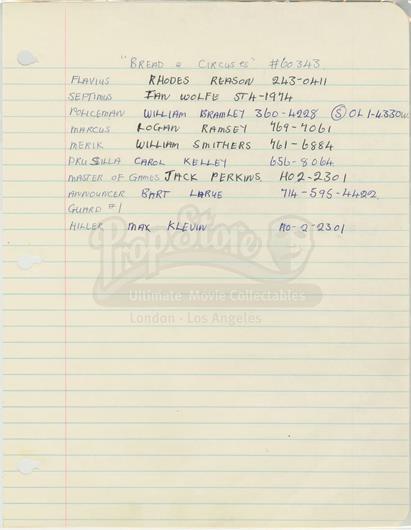 "BREAD & CIRCUSES" #60343
FLAVIUS RHODES REASON 243-0411
SEPTIMUS IAN WOLFE ST4-1974
POLICEMAN WILLIAM BRAMLEY 360-4228 (S) OL1-4330
MARCUS LOGAN RAMSEY 769-7061
MERIK WILLIAM SMITHERS 761-6884
DRUSILLA CAROL KELLEY 656-8064
MASTER OF GAMES JACK PERKINS HO2-2301
ANNOUNCER BART LARUE 714-595-4422
GUARD #1
HILLER MAX KLEVIN HO-2-2301
PropStore
Ultimate Movie Collectables
London - Los Angeles